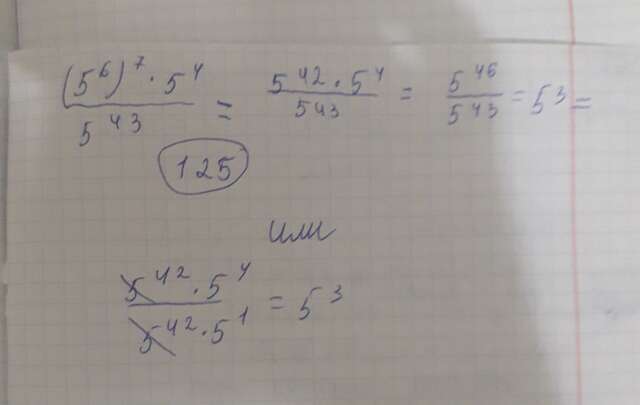 (5^6)^7 · 5^4 / 5^43 = 5^42 · 5^4 / 5^43 = 5^46 / 5^43 = 5^3 =
125
или
5^42 · 5^4 / 5^42 · 5^1 = 5^3